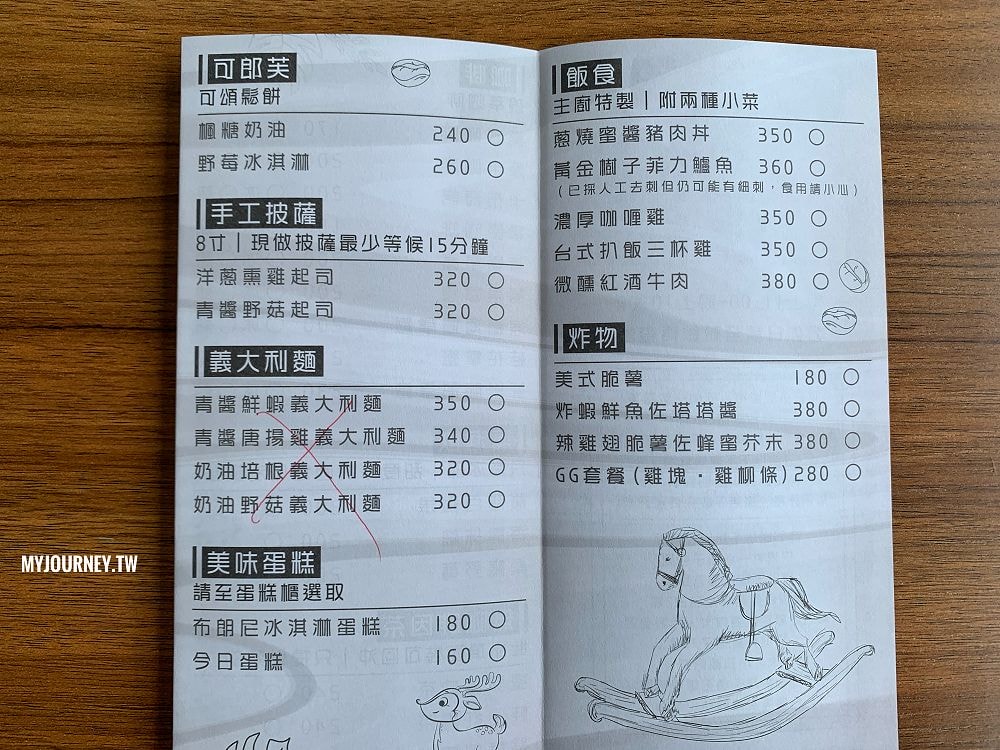 可郎芙
可頌鬆餅
楓糖奶油 240
野莓冰淇淋 260
手工披薩
8寸|現做披薩最少等候15分鐘
洋蔥熏雞起司 320
青醬野菇起司 320
義大利麵
青醬鮮蝦義大利麵 350
青醬唐揚雞義大利麵 340
奶油培根義大利麵 320
奶油野菇義大利麵 320
美味蛋糕
請至蛋糕櫃選取
布朗尼冰淇淋蛋糕 180
今日蛋糕 160
飯食
主廚特製|附兩種小菜
蔥燒蜜醬豬肉丼 350
黃金樹子菲力鱸魚 360
(已採人工去刺但仍可能有細刺,食用請小心)
濃厚咖喱雞 350
台式扒飯三杯雞 350
微醺紅酒牛肉 380
炸物
美式脆薯 180
炸蝦鮮魚佐塔塔醬 380
辣雞翅脆薯佐蜂蜜芥末 380
GG套餐(雞塊·雞柳條) 280
MYJOURNEY.TW